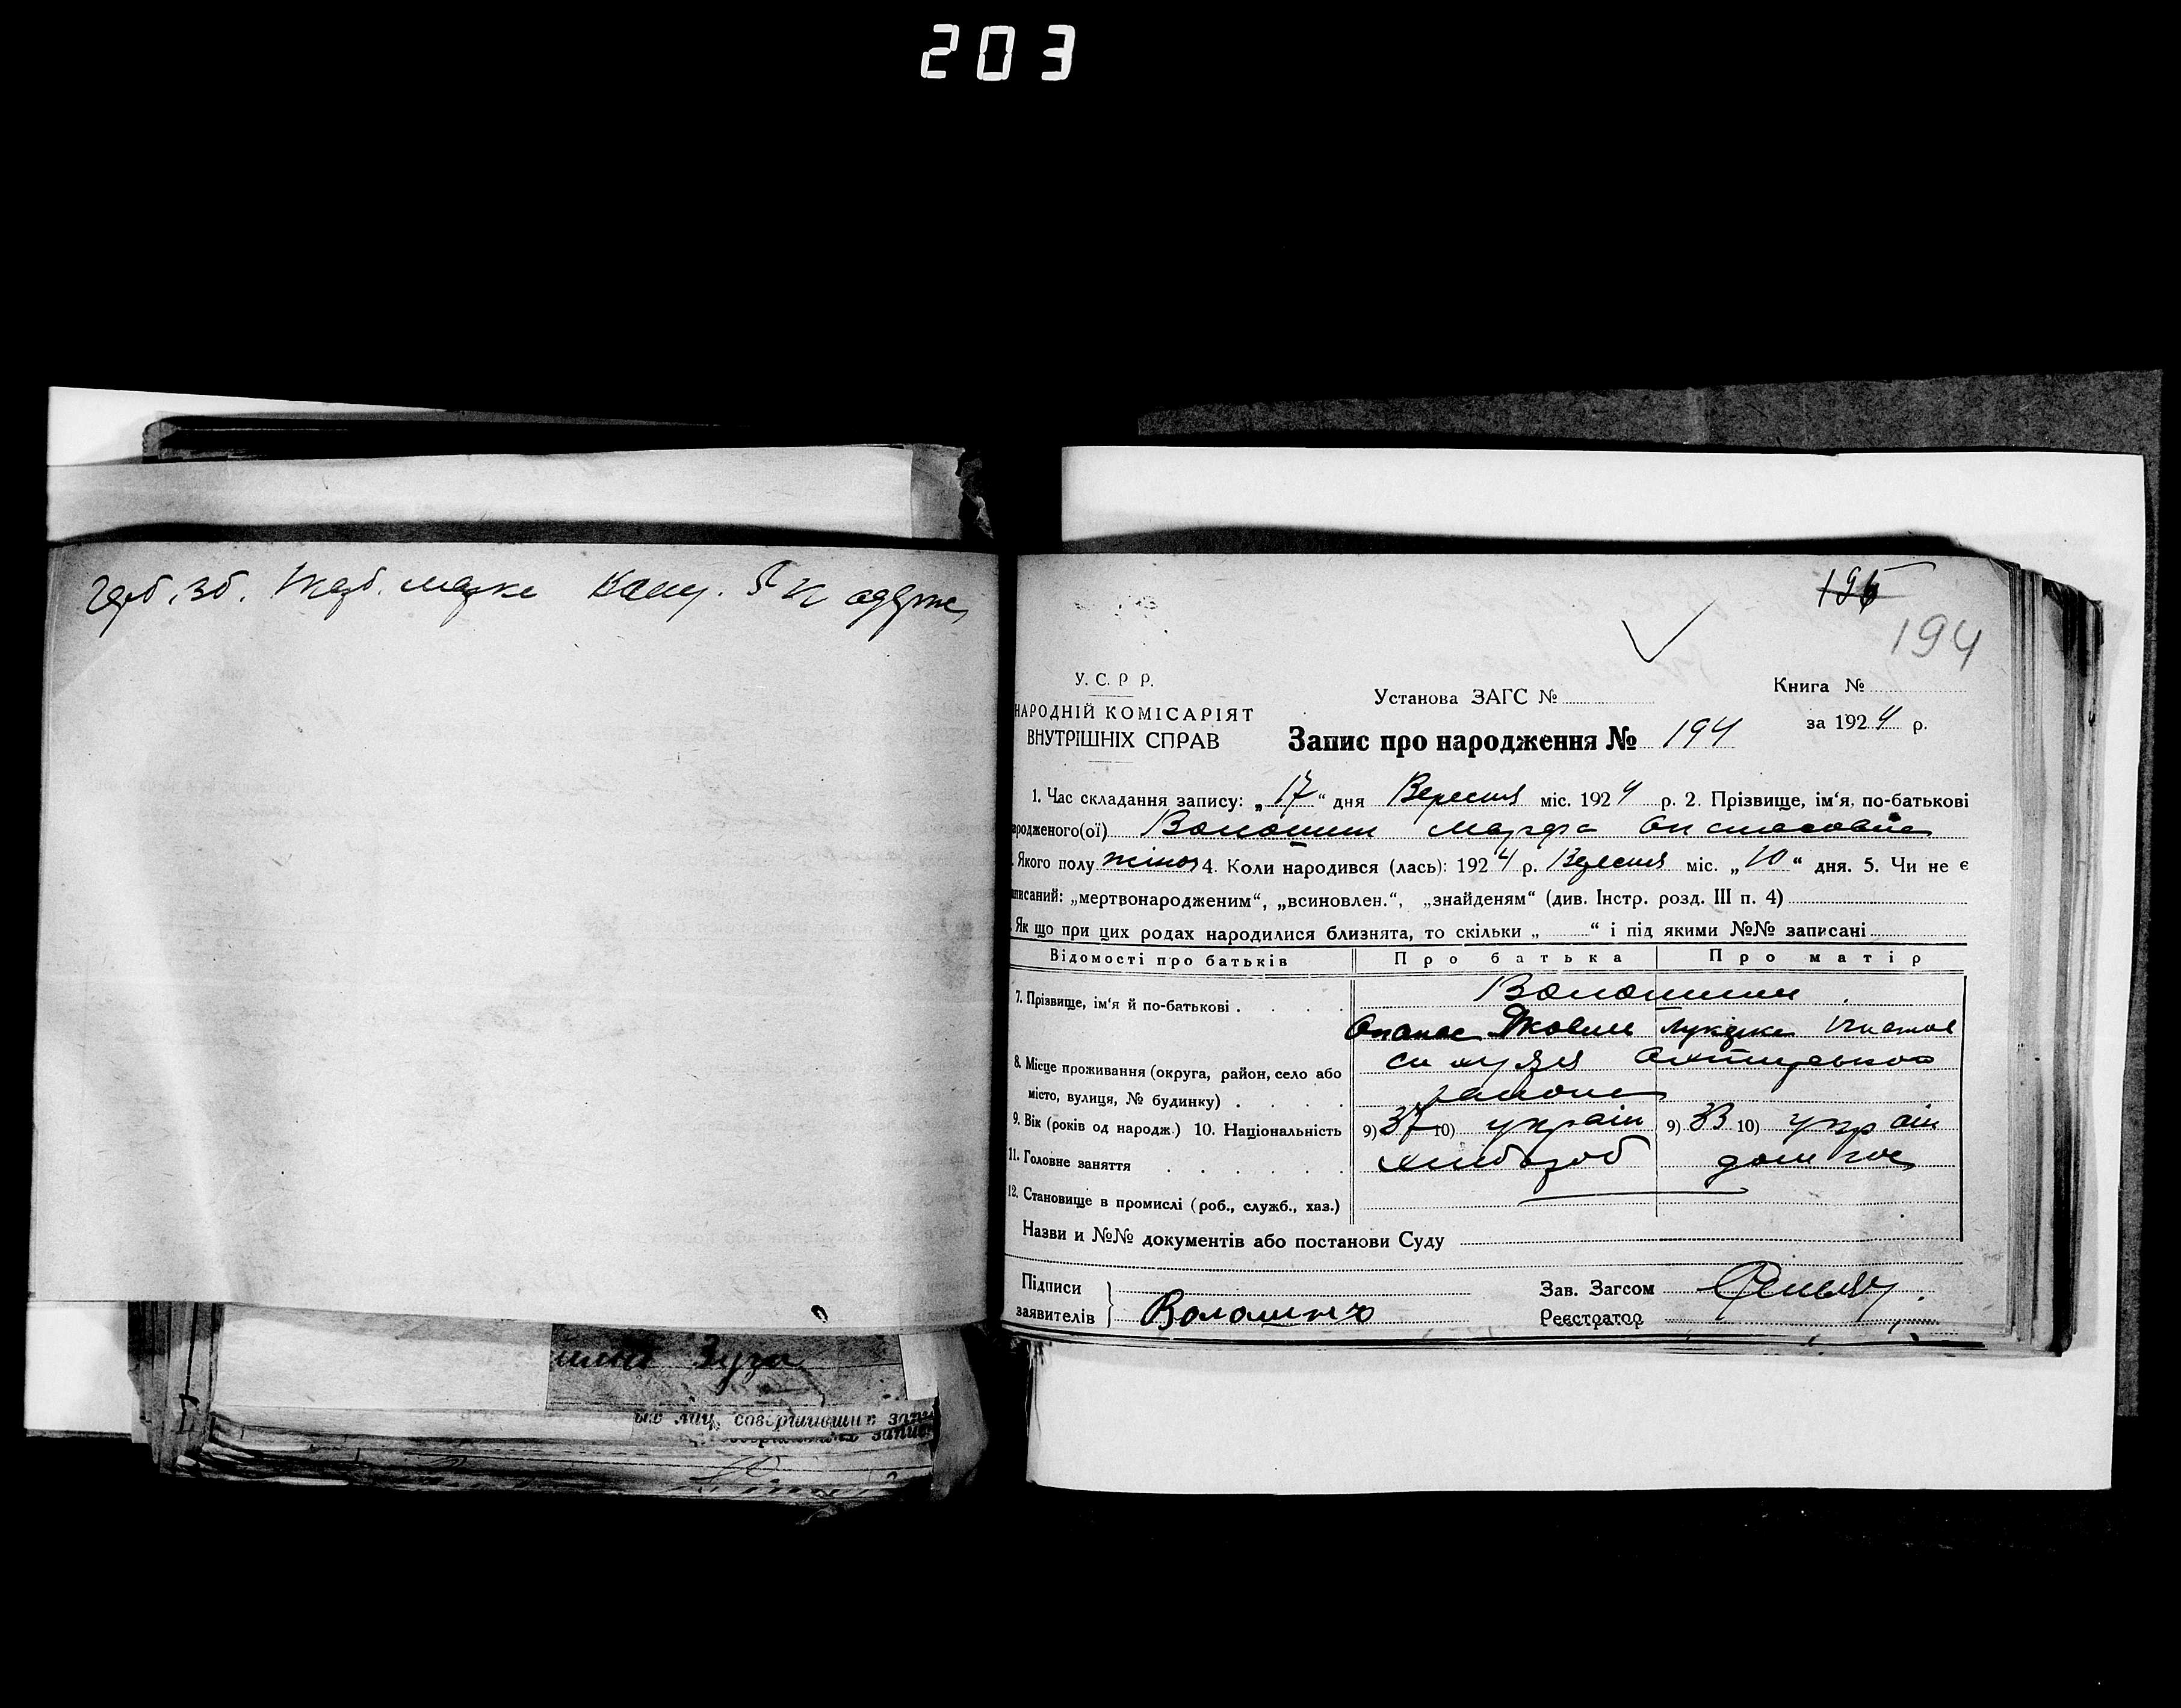 203
Герб. зб. Герб. марки Канц. 5 к одерж.
195
194
У. С. Р Р.
НАРОДНІЙ КОМІСАРІЯТ
ВНУТРІШНІХ СПРАВ
Установа ЗАГС №
Книга №
за 1924 р.
Запис про народження № 194
1. Час складання запису: „17“ дня Вересня міс. 1924 р. 2. Прізвище, ім‘я, по-батькові
народженого(ої) Волошин Марфа Опанасовна
Якого полу жіноч 4. Коли народився (лась): 1924 р. Вересня міс. „10“ дня. 5. Чи не є
записаний: „мертвонародженим“, „всиновлен.“, „знайденям“ (див. Інстр. розд. III п. 4)
Як що при цих родах народилися близнята, то скільки „ “ і під якими №№ записані
Відомості про батьків Про батька Про матір
7. Прізвище, ім‘я й по-батькові . . . . Волошини
Опанас Якович Лукерка Игнатов
8. Місце проживання (округа, район, село або
місто, вулиця, № будинку) . . . .
района
9. Вік (років од народж.) 10. Національність 9) 37 10) україн 9) 33 10) україн
11. Головне заняття . . . . . . хлібороб дом гос
12. Становище в промислі (роб., служб., хаз.)
Назви и №№ документів або постанови Суду
Підписи
заявителів Волошинъ
Зав. Загсом
Реєстратор
шина Зуза
ых лиц, совершивших запи